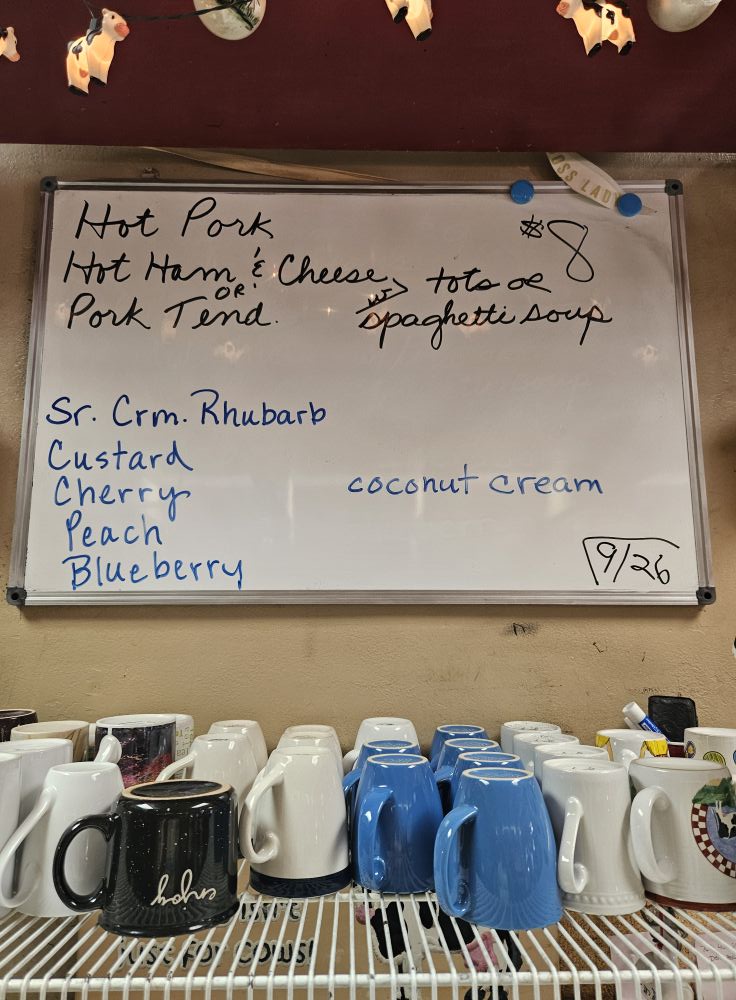 OSS LADY
Hot Pork
$8
Hot Ham & Cheese
OR
Pork Tend.
w/ > tots or
spaghetti soup
Sr. Crm. Rhubarb
Custard
Cherry
coconut cream
Peach
Blueberry
9/26
JUST FOR COWS!